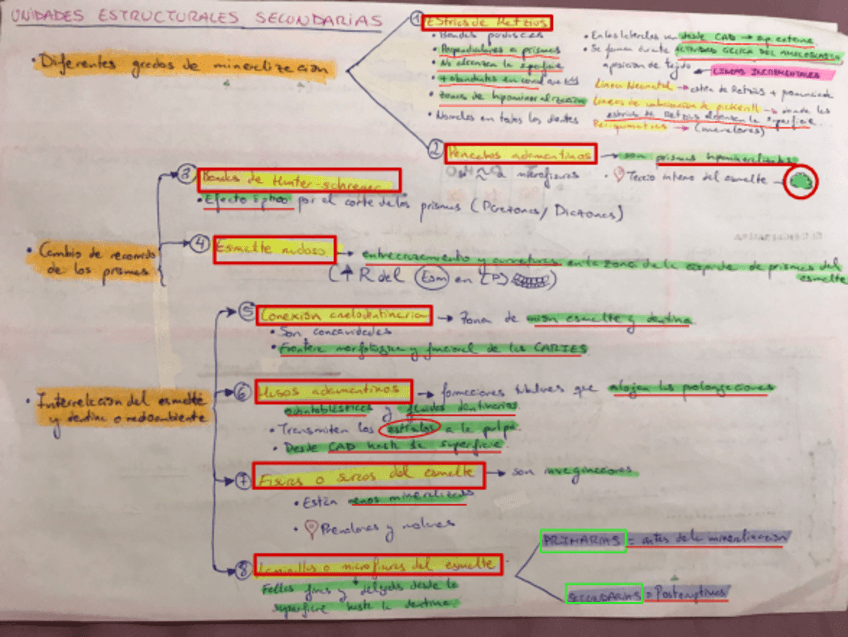 UNIDADES ESTRUCTURALES SECUNDARIAS
• Diferentes grados de mineralización
① Estrías de Retzius
• Bandas
• Perpendiculares a prismas
• No alcanzan la superficie
+ abundantes en
• zonas de hipomineralización
• Normales en todos los dientes
• En los laterales van desde CAD → sup. externa
• Se forman durante ACTIVIDAD CÍCLICA DEL AMELOBLASTO
aposición de tejido
LÍNEAS INCREMENTALES
Línea Neonatal → estría de Retzius + pronunciada
Líneas de imbricación de Pickerill → donde las
estrías de Retzius alcanzan la superficie
Periquimatías →
② Penachos adamantinos → son prismas hipomineralizados
microfisuras
• Tercio interno del esmalte
• Cambio de recorrido
de los prismas
③ Bandas de Hunter-Schreger
• Efecto óptico por el corte de los prismas (Parazonas / Diazonas)
④ Esmalte nudoso → entrecruzamiento y curvaturas en la zona de la cúspide de prismas del
esmalte
(↑ R del Esm en (P)
• Interrelación del esmalte
y dentina o medio ambiente
⑤ Conexión amelodentinaria → Zona de unión esmalte y dentina
• Son concavidades
• Frontera morfológica y funcional de las CARIES
⑥ Husos adamantinos → formaciones tubulares que alojan las prolongaciones
odontoblásticas y fluidos dentinarios
• Transmiten los estímulos a la pulpa
• Desde CAD hasta la superficie
⑦ Fisuras o surcos del esmalte → son invaginaciones
• Están menos mineralizadas
• Premolares y molares
⑧ Laminillas o microfisuras del esmalte
Fallas finas y delgadas desde la
superficie hasta la dentina.
PRIMARIAS = antes de la mineralización
SECUNDARIAS = Posteruptivas